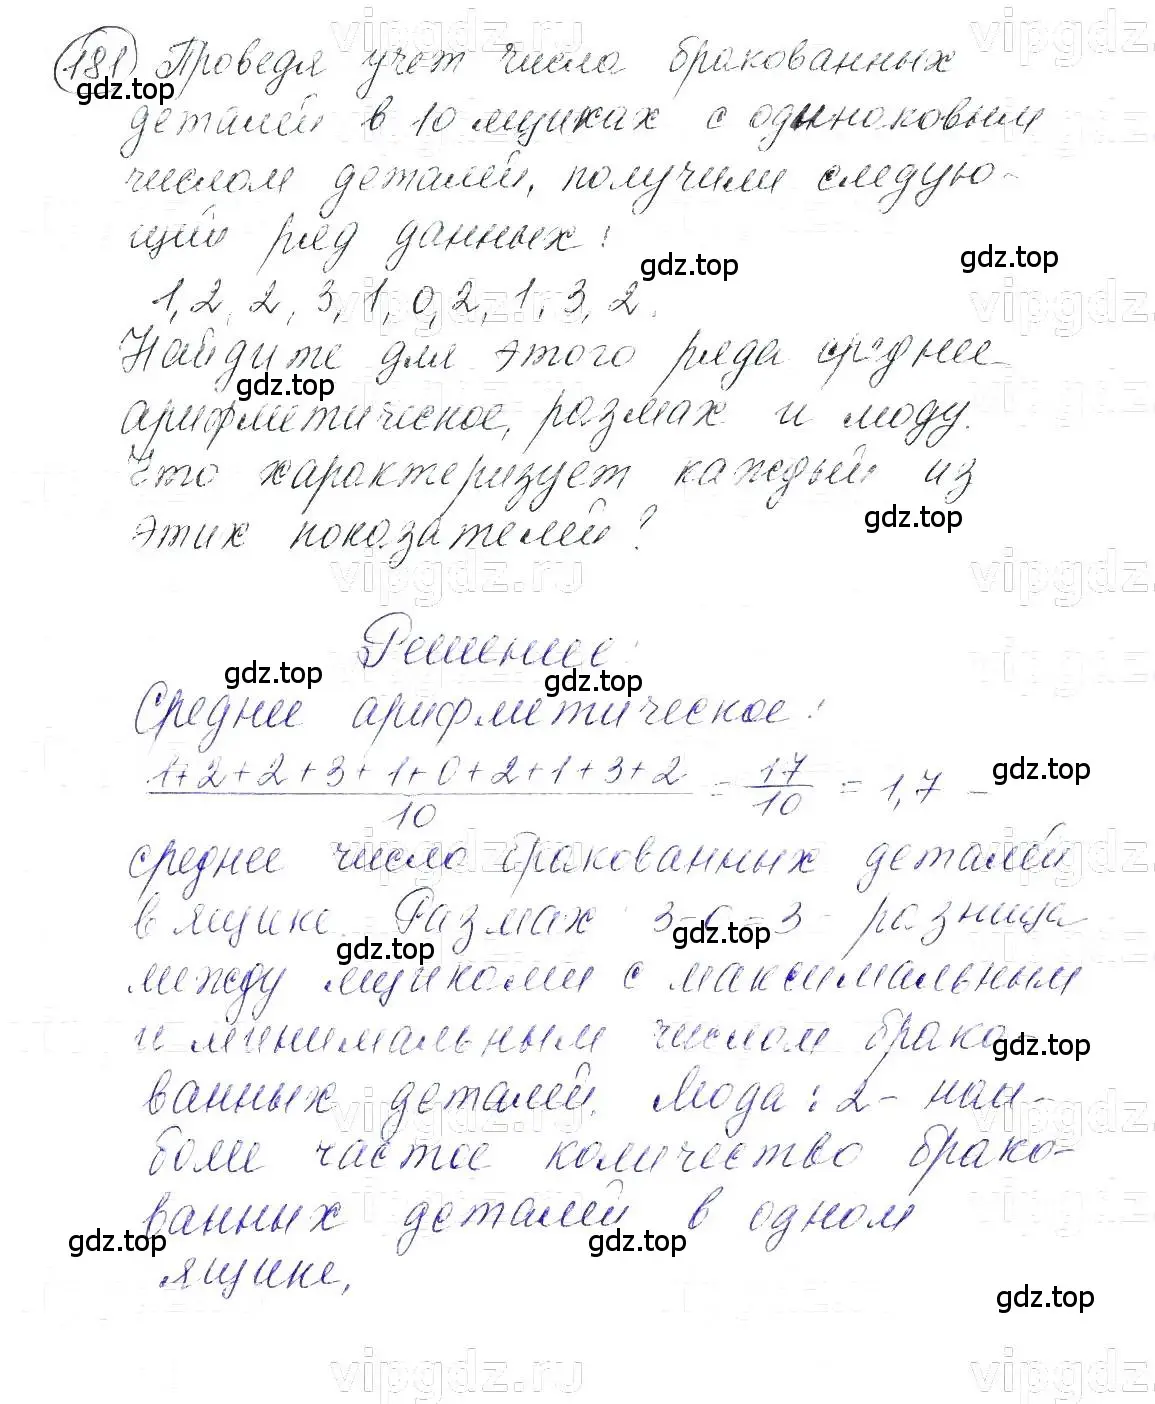 181 Проведя учет числа бракованных
деталей в 10 ящиках с одинаковым
числом деталей, получили следую-
щий ряд данных:
1, 2, 2, 3, 1, 0, 2, 1, 3, 2.
Найдите для этого ряда среднее
арифметическое, размах и моду.
Что характеризует каждый из
этих показателей?
Решение:
Среднее арифметическое:
1+2+2+3+1+0+2+1+3+2/10 = 17/10 = 1,7 –
среднее число бракованных деталей
в ящике. Размах: 3-0=3 разница
между ящиками с максимальным
и минимальным числом брако-
ванных деталей. Мода: 2 - наи-
более частое количество брако-
ванных деталей в одном
ящике,
gdz.top
gdz.top
gdz.top
gdz.top
gdz.top
gdz.top
gdz.top
gdz.top
gdz.top
gdz.top
gdz.top
gdz.top
gdz.top
gdz.top
vipgdz.ru
vipgdz.ru
vipgdz.ru
vipgdz.ru
vipgdz.ru